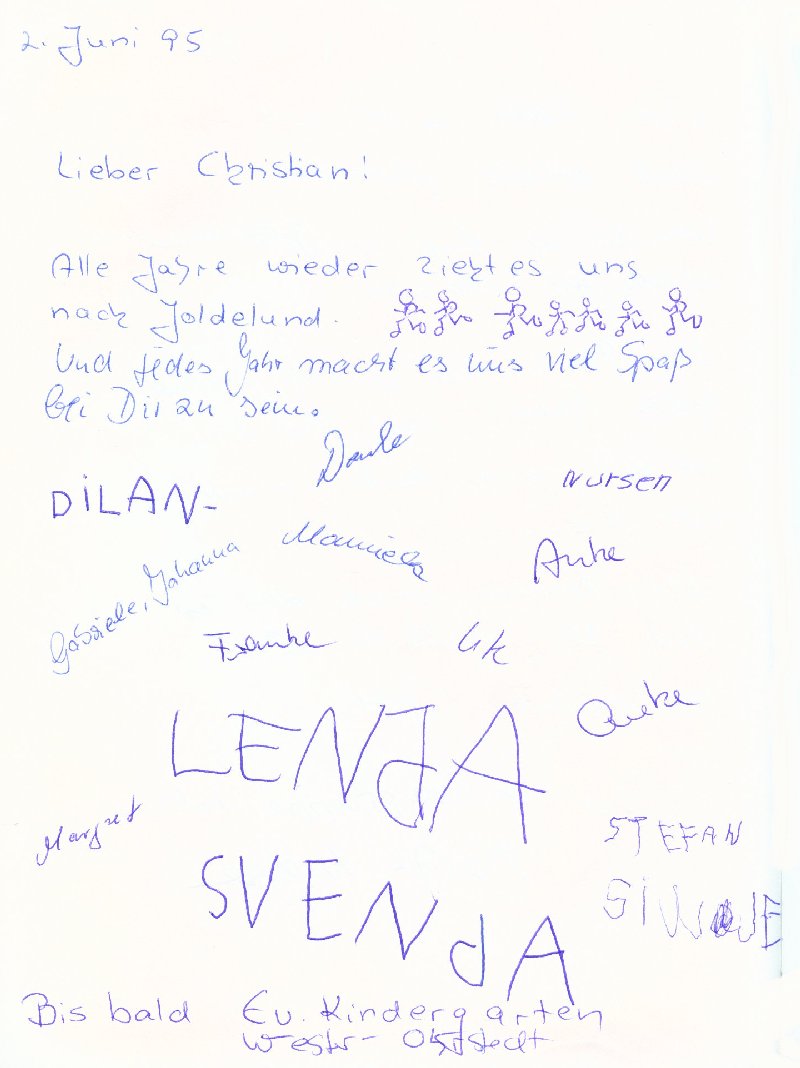 2. Juni 95
Lieber Christian!
Alle Jahre wieder zieht es uns
nach Joldelund.
Und jedes Jahr macht es uns viel Spaß
bei Dir zu sein.
Dande
DİLAN-
Nursen
Manuela
Anke
Gabriele, Johanna
Frauke
LENJA
Auke
Margret
STEFAN
SVENJA
Bis bald Ev. Kindergarten
Wester-Ohrstedt